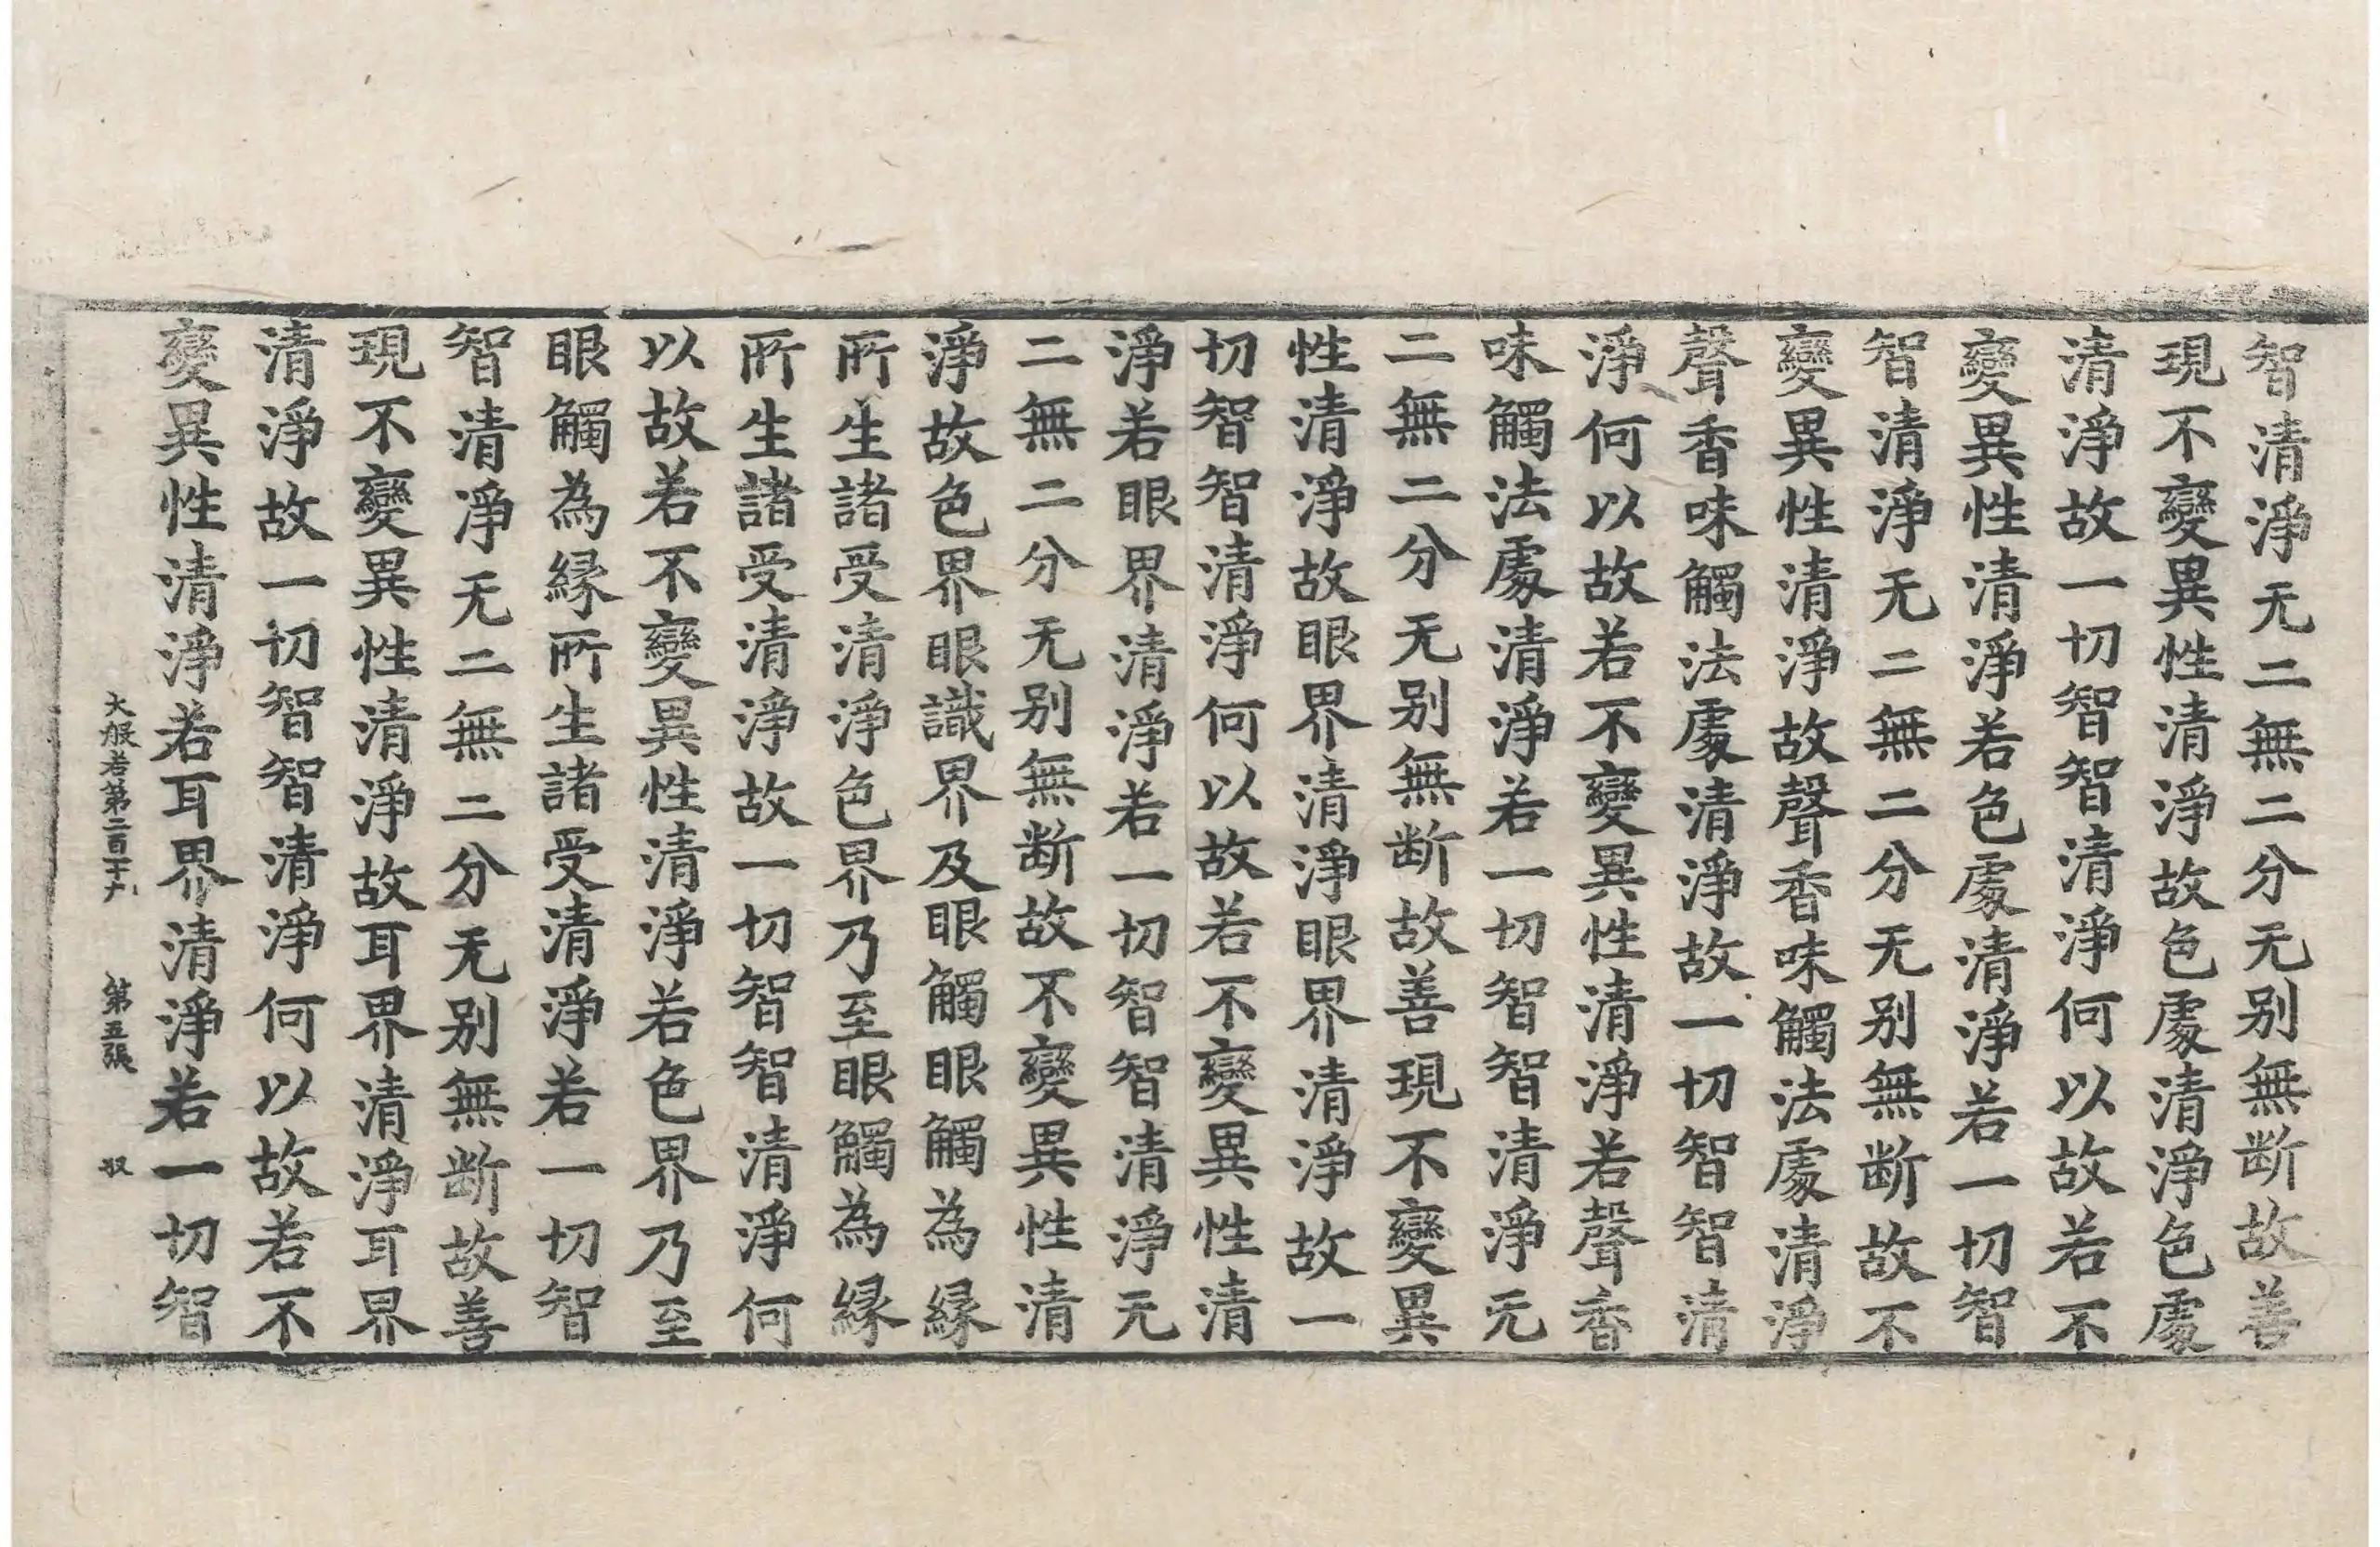 智清淨无二無二分无别無断故善
現不變異性清淨故色處清淨色處
清淨故一切智智清淨何以故若不
變異性清淨若色處清淨若一切智
智清淨无二無二分无别無断故不
變異性清淨故聲香味觸法處清淨
聲香味觸法處清淨故一切智智清
淨何以故若不變異性清淨若聲香
味觸法處清淨若一切智智清淨无
二無二分无别無断故善現不變異
性清淨故眼界清淨眼界清淨故一
切智智清淨何以故若不變異性清
淨若眼界清淨若一切智智清淨无
二無二分无别無断故不變異性清
淨故色界眼識界及眼觸眼觸為縁
所生諸受清淨色界乃至眼觸為縁
所生諸受清淨故一切智智清淨何
以故若不變異性清淨若色界乃至
眼觸為縁所生諸受清淨若一切智
智清淨无二無二分无别無断故善
現不變異性清淨故耳界清淨耳界
清淨故一切智智清淨何以故若不
變異性清淨若耳界清淨若一切智
大般若第二百十九 第五張 奴